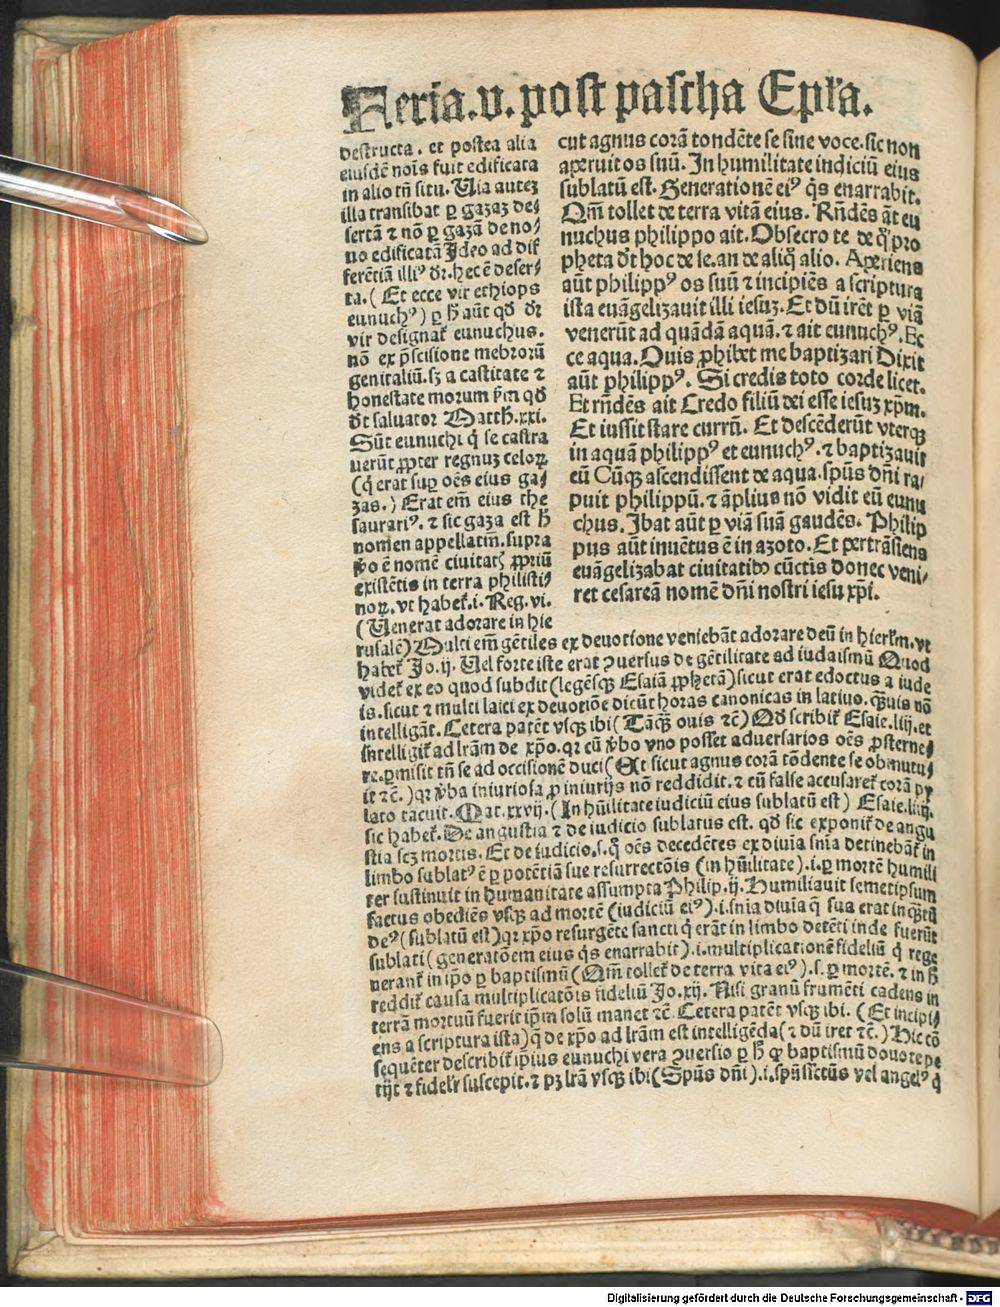 Feria.v.post pascha Epła.
destructa. et postea alia
eiusdē noīs fuit edificata
in alio tñ situ. Uia autez
illa transibat ꝑ gazaz de⸗
sertā ⁊ nō ꝑ gazā de no⸗
uo edificatā Ideo ad dif
ferētiā illiꝰ dr̄. hec ē deser⸗
ta. (Et ecce vir ethiops
eunuchꝰ) ꝑ ħ aūt qđ dr̄
vir designat̃ eunuchus.
nō ex p̄scisione mēbrorū
genitaliū. sꝫ a castitate ⁊
honestate morum ꝓm qđ
dt saluator Matth̄. xxi.
Sūt eunuchi q̇ se castra
uerūt ꝓpter regnuꝫ celoꝝ
(q̇ erat suꝑ oēs eius ga⸗
zas.) Erat em̄ eius the
saurariꝰ. ⁊ sic gaza est ħ
nomen appellatiū. supra
ꝟo ē nomē ciuitat̃ ꝓpriū
existētis in terra philisti⸗
noꝝ. vt habet̃. i. Reg. vi.
(Uenerat adorare in hie
cut agnus corā tondēte se sine voce. sic non
aperuit os suū. In humilitate iudiciū eius
sublatū est. Generationē eiꝰ q̇s enarrabit.
Qm̄ tollet de terra vitā eius. Rn̄dēs āt eu
nuchus philippo ait. Obsecro te de q̊ pro
pheta dt hoc de se. an de aliq̊ alio. Aperiens
aūt philippꝰ os suū ⁊ incipiēs a scriptura
ista euāgelizauit illi iesuꝫ. Et dū irēt ꝑ viā
venerūt ad quādā aquā. ⁊ ait eunuchꝰ. Ec
ce aqua. Quis ꝓhibet me baptizari Dixit
aūt philippꝰ. Si credis toto corde licet.
Et rn̄dēs ait Credo filiū dei esse iesuꝫ xp̄m.
Et iussit stare currū. Et descēderūt vterqꝫ
in aquā philippꝰ et eunuchꝰ. ⁊ baptizauit
eū Cūqꝫ ascendissent de aqua. sp̄us dn̄i ra⸗
puit philippū. ⁊ āplius nō vidit eū eunu
chus. Ibat aūt ꝑ viā suā gaudēs. Philip
pus aūt inuētus ē in azoto. Et pertrāsiens
euāgelizabat ciuitatibꝰ cūctis donec veni⸗
ret cesareā nomē dn̄i nostri iesu xp̄i.
rusalē) Multi em̄ gētiles ex deuotione veniebāt adorare deū in hierłm. vt
habet̃ Jo. ij. Uel forte iste erat ꝯuersus de gētilitate ad iudaismū Quod
videt̃ ex eo quod subdit (legēsqꝫ Esaiā ꝓphetā) sicut erat edoctus a iude
is. sicut ⁊ multi laici ex deuotiōe dicūt horas canonicas in latino. q̄uis nō
intelligāt. Cetera patēt vsqꝫ ibi (Tāqꝫ ouis ⁊c̄) Qđ scribit̃ Esaie. liij. et
intelligit̃ ad lr̄am de xp̄o. qꝛ cū ꝟbo vno posset aduersarios oēs ꝓsterne⸗
re. ꝑmisit tn̄ se ad occisionē duci (Et sicut agnus corā tōdente se obmutu⸗
it ⁊c̄.) qꝛ ꝟba iniuriosa ꝓ iniurijs nō reddidit. ⁊ cū false accusaret̃ corā py
lato tacuit. Mat. xxvij. (In hūilitate iudiciū eius sublatū est) Esaie. liij.
sic habet̃. De angustia ⁊ de iudicio sublatus est. qđ sic exponit̃ de angu
stia scꝫ mortis. Et de iudicio. s. q̊ oēs decedētes ex diuīa sn̄ia detinebāt̃ in
limbo sublatꝰ ē ꝑ potētiā sue resurrectōis (in hūilitate). i. ꝑ mortē humili
ter sustinuit in humanitate assumpta Philip. ij. Humiliauit semetipsum
factus obediēs vsqꝫ ad mortē (iudiciū eiꝰ). i. sn̄ia diuīa q̄ sua erat inq̄tū
deꝰ (sublatū est) qꝛ xp̄o resurgēte sancti q̇ erāt in limbo detēti inde fuerūt
sublati (generatōem eius q̇s enarrabit). i. multiplicationē fideliū q̇ rege
nerant̃ in ip̄o ꝑ baptismū (Qm̄ tollet̃ de terra vita eiꝰ). s. ꝑ mortē. ⁊ in ħ
reddit̃ causa multiplicatōis fideliū Jo. xij. Nisi granū frumēti cadens in
terrā mortuū fuerit ip̄m solū manet ⁊c̄. Cetera patēt vsqꝫ ibi. (Et incipi⸗
ens a scriptura ista) q̄ de xp̄o ad lr̄am est intelligēda (⁊ dū iret ⁊c̄.) Hic cō
sequēter describit̃ ip̄ius eunuchi vera ꝯuersio ꝑ ħ ꝙ baptismū deuote pe
tijt ⁊ fidel̃r suscepit. ⁊ pꝫ lr̄a vsqꝫ ibi (Sp̄us dn̄i). i. sp̄ussctūs vel angelꝰ q̇
Digitalisierung gefördert durch die Deutsche Forschungsgemeinschaft - DFG